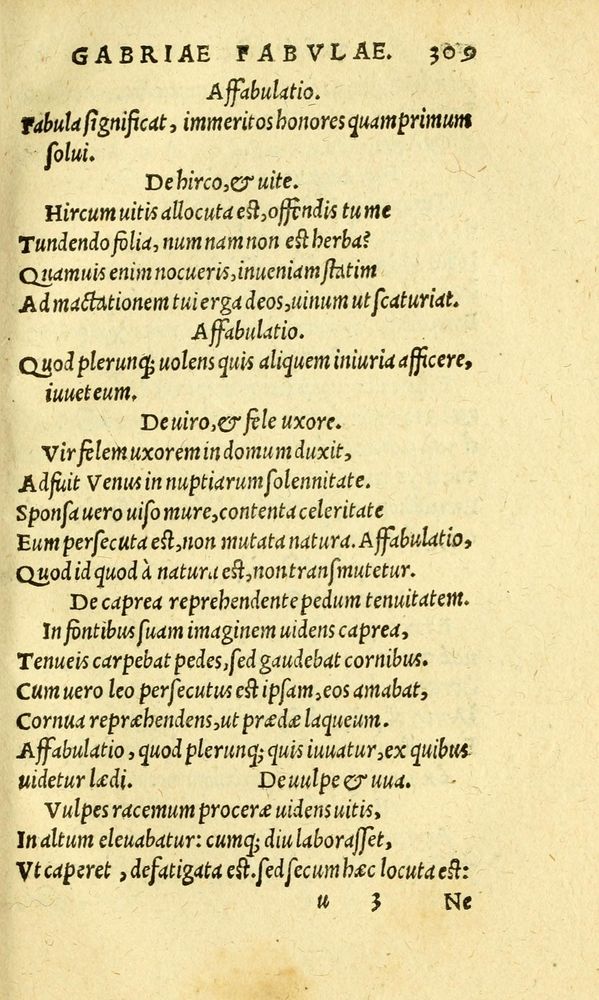 GABRIAE FABVLAE. 309
Affabulatio.
Fabula significat, immeritos honores quamprimum
solui.
De hirco, & uite.
Hircum uitis allocuta est, offendis tu me
Tundendo folia, num nam non est herba?
Quamuis enim nocueris, inueniam statim
Ad mactationem tui erga deos, uinum ut scaturiat.
Affabulatio.
Quod plerunq; uolens quis aliquem iniuria afficere,
iuuet eum.
De uiro, & fele uxore.
Vir felem uxorem in domum duxit,
Adfuit Venus in nuptiarum solennitate.
Sponsa uero uiso mure, contenta celeritate
Eum persecuta est, non mutata natura. Affabulatio,
Quod id quod à natura est, non transmutetur.
De caprea reprehendente pedum tenuitatem.
In fontibus suam imaginem uidens caprea,
Tenueis carpebat pedes, sed gaudebat cornibus.
Cum uero leo persecutus est ipsam, eos amabat,
Cornua repræhendens, ut prædæ laqueum.
Affabulatio, quod plerunq; quis iuuatur, ex quibus
uidetur lædi. De uulpe & uua.
Vulpes racemum proceræ uidens uitis,
In altum eleuabatur: cumq; diu laborasset,
Vt caperet, defatigata est. sed secum hæc locuta est:
u 3 Ne